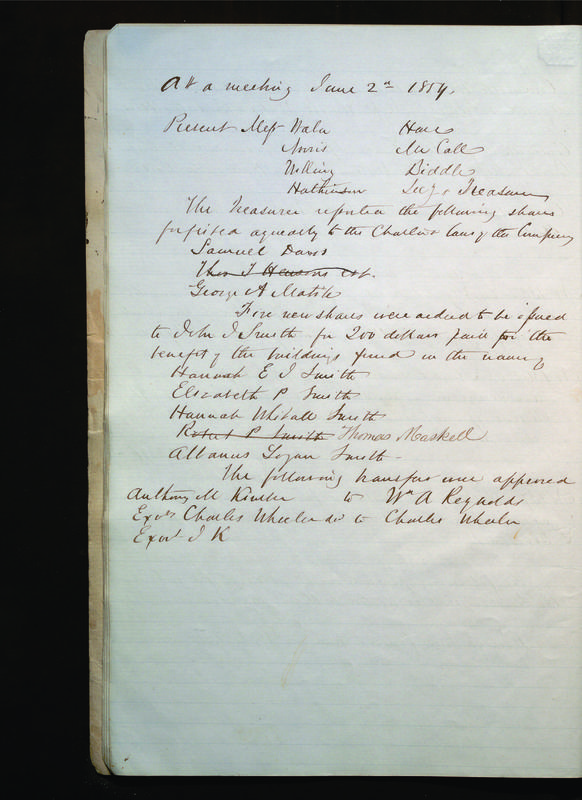 At a meeting June 2d 1854.
Present Mess Waln Hare
Norris McCall
Willing Biddle
Hutchinson Secy & Treasurer
The Treasurer reported the following shares
forfeited agreeably to the Charter & laws of the Company
Samuel Davis
George A
Five new shares were ordered to be issued
to John J Smith for 200 dollars paid for the
benefit of the buildings fund in the names of
Hannah E J Smith
Elizabeth P Smith
Hannah Whitall Smith
Robert P Smith Thomas Maskell
Albanus Logan Smith
The following transfers were approved
Anthony M Kimber to Wm A Reynolds
Exrs Charles Wheeler decd to Charles Wheeler
Exor J K